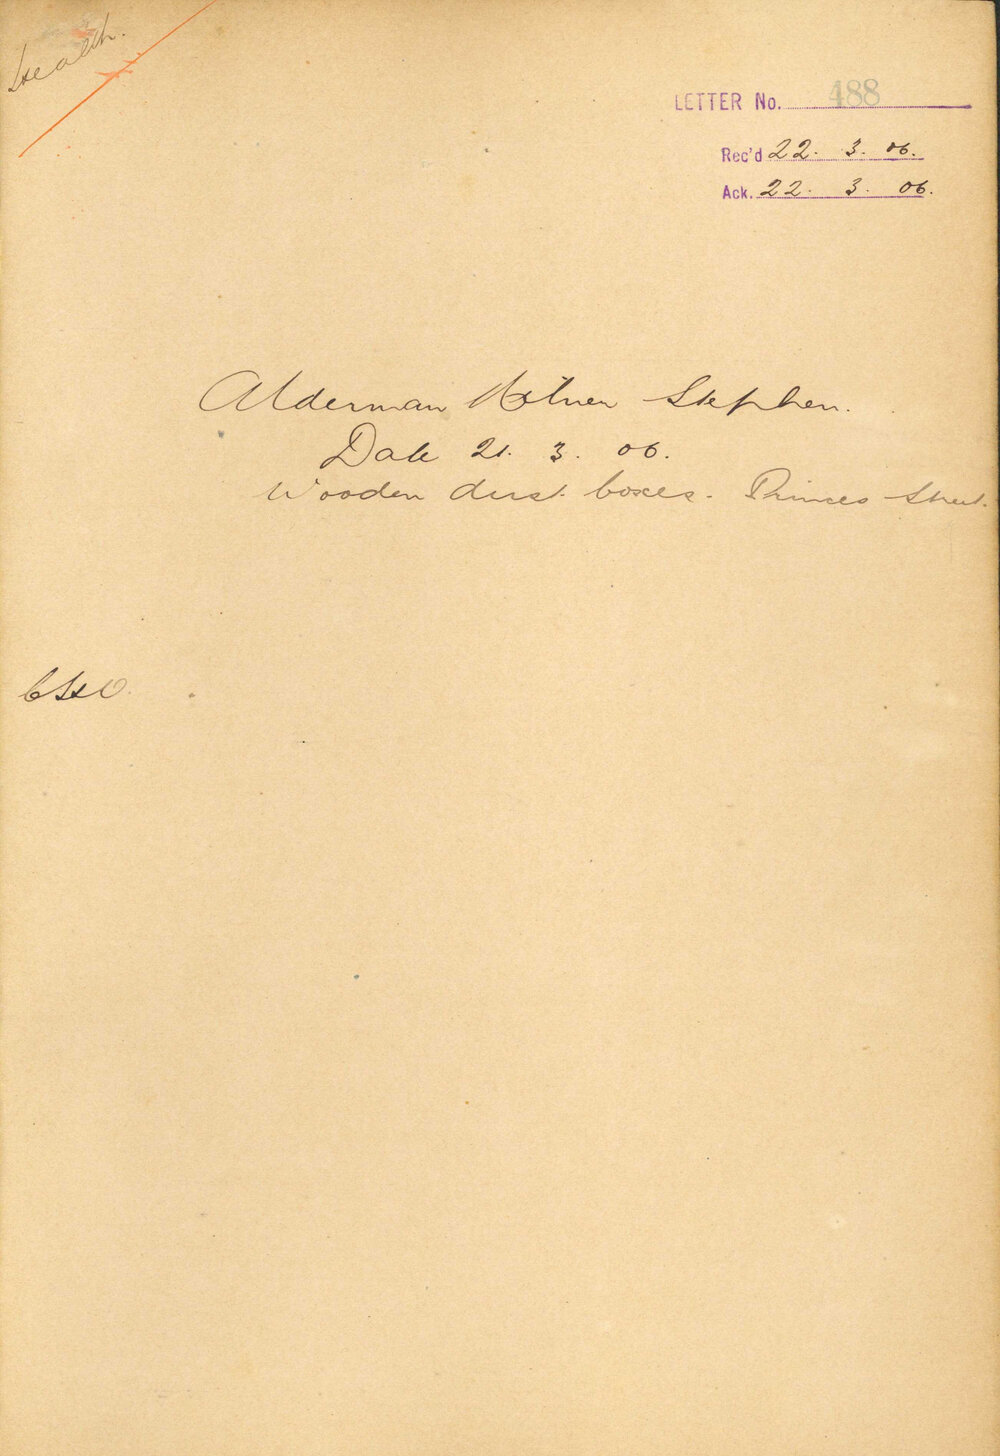 Health.
LETTER No. 488
Rec'd 22. 3. 06.
Ack. 22. 3. 06.
Alderman Milner Stephen.
Date 21. 3. 06.
Wooden dust boxes. Princes Street.
CHO.